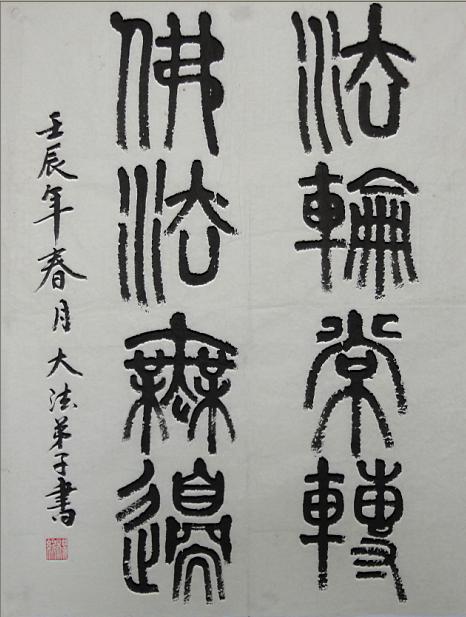 法輪常轉
佛法無邊
壬辰年春月大法弟子書